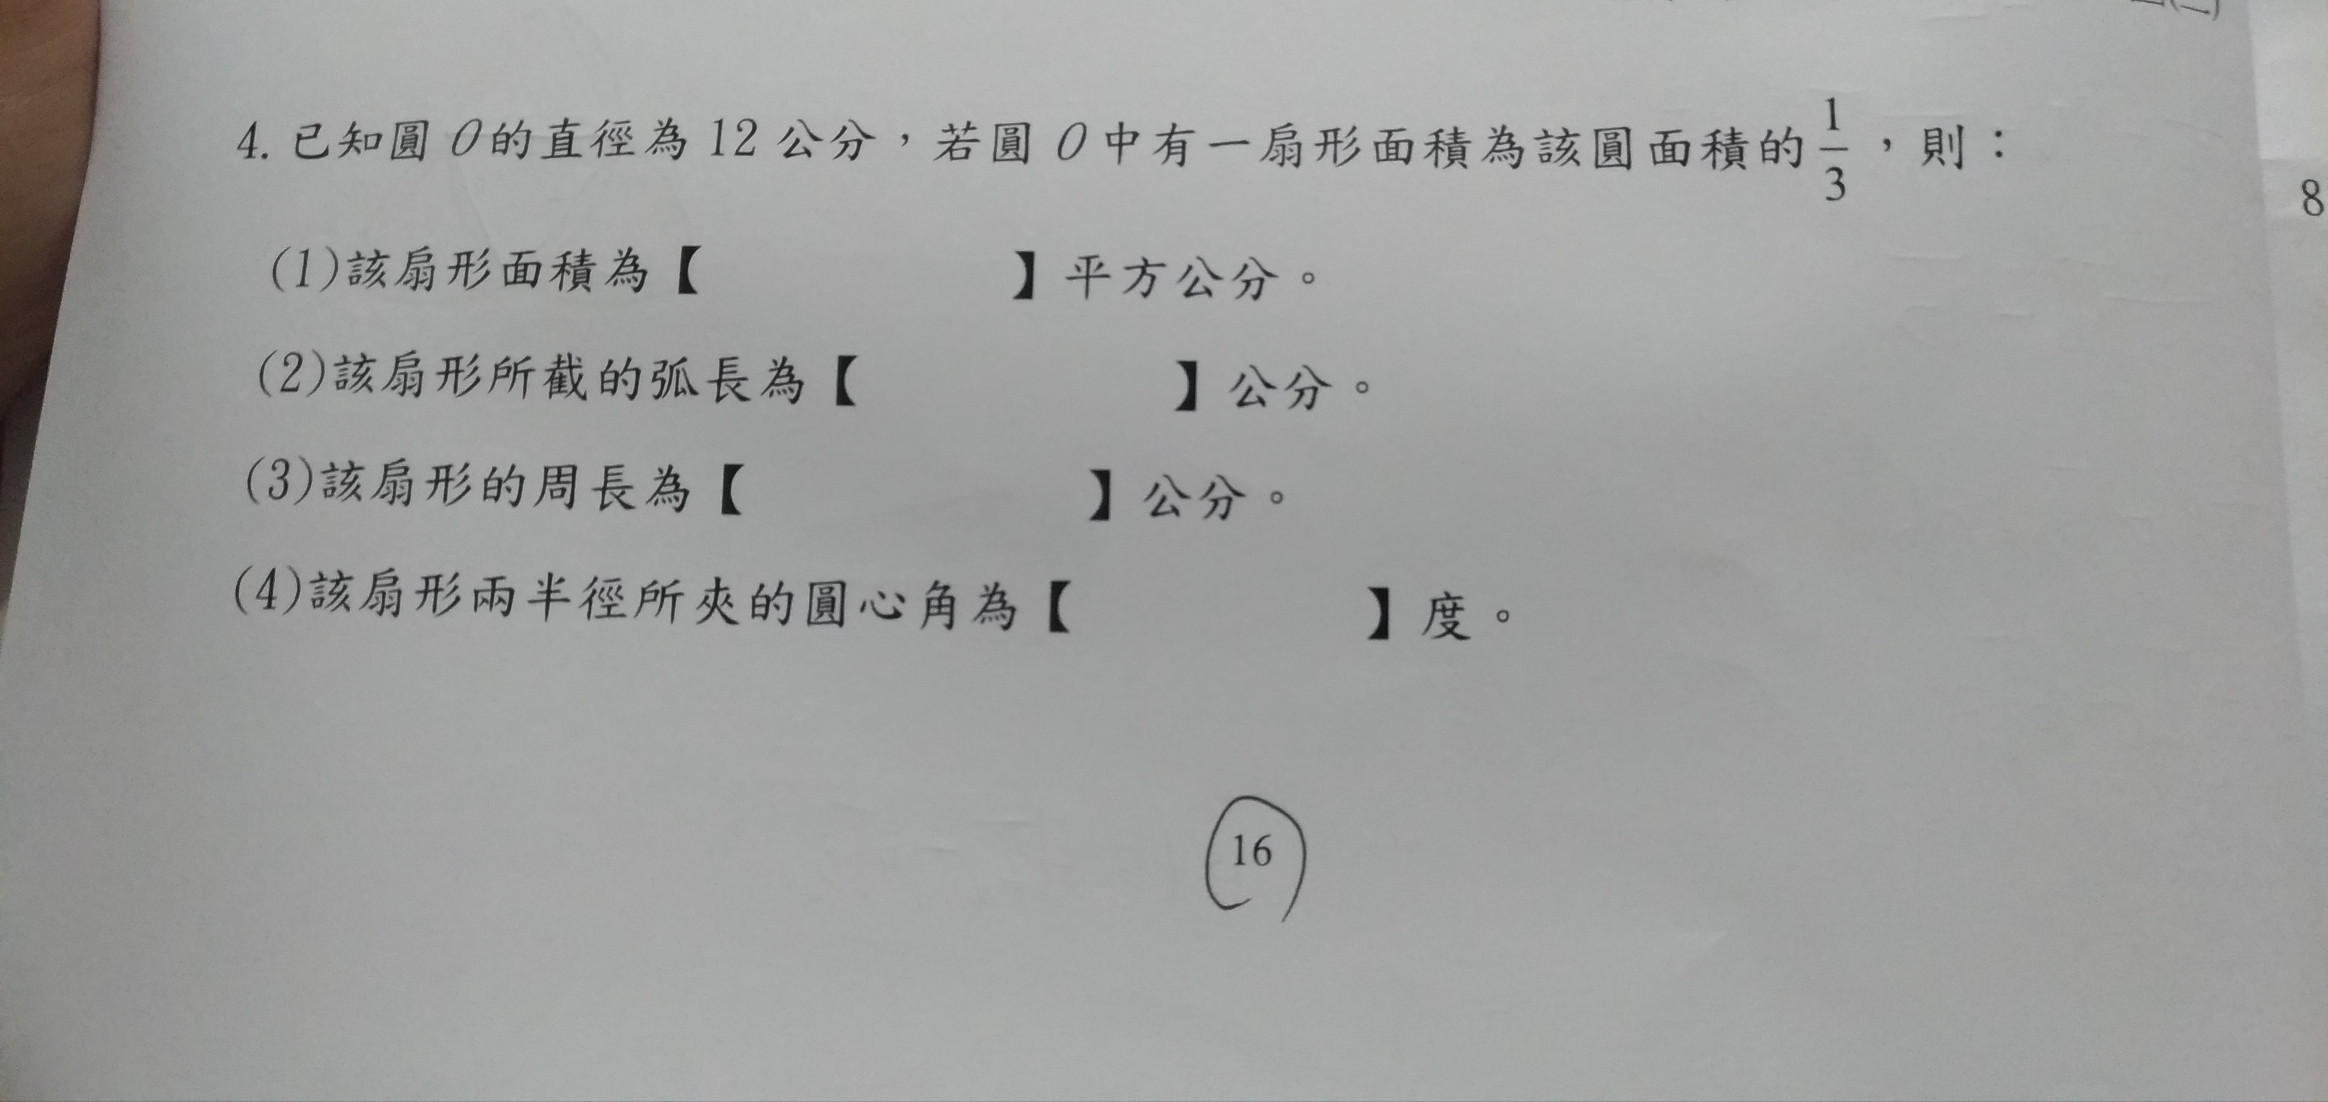 4. 已知圓 O 的直徑為 12 公分，若圓 O 中有一扇形面積為該圓面積的 1/3，則：
(1)該扇形面積為【 】平方公分。
(2)該扇形所截的弧長為【 】公分。
(3)該扇形的周長為【 】公分。
(4)該扇形兩半徑所夾的圓心角為【 】度。
16
8